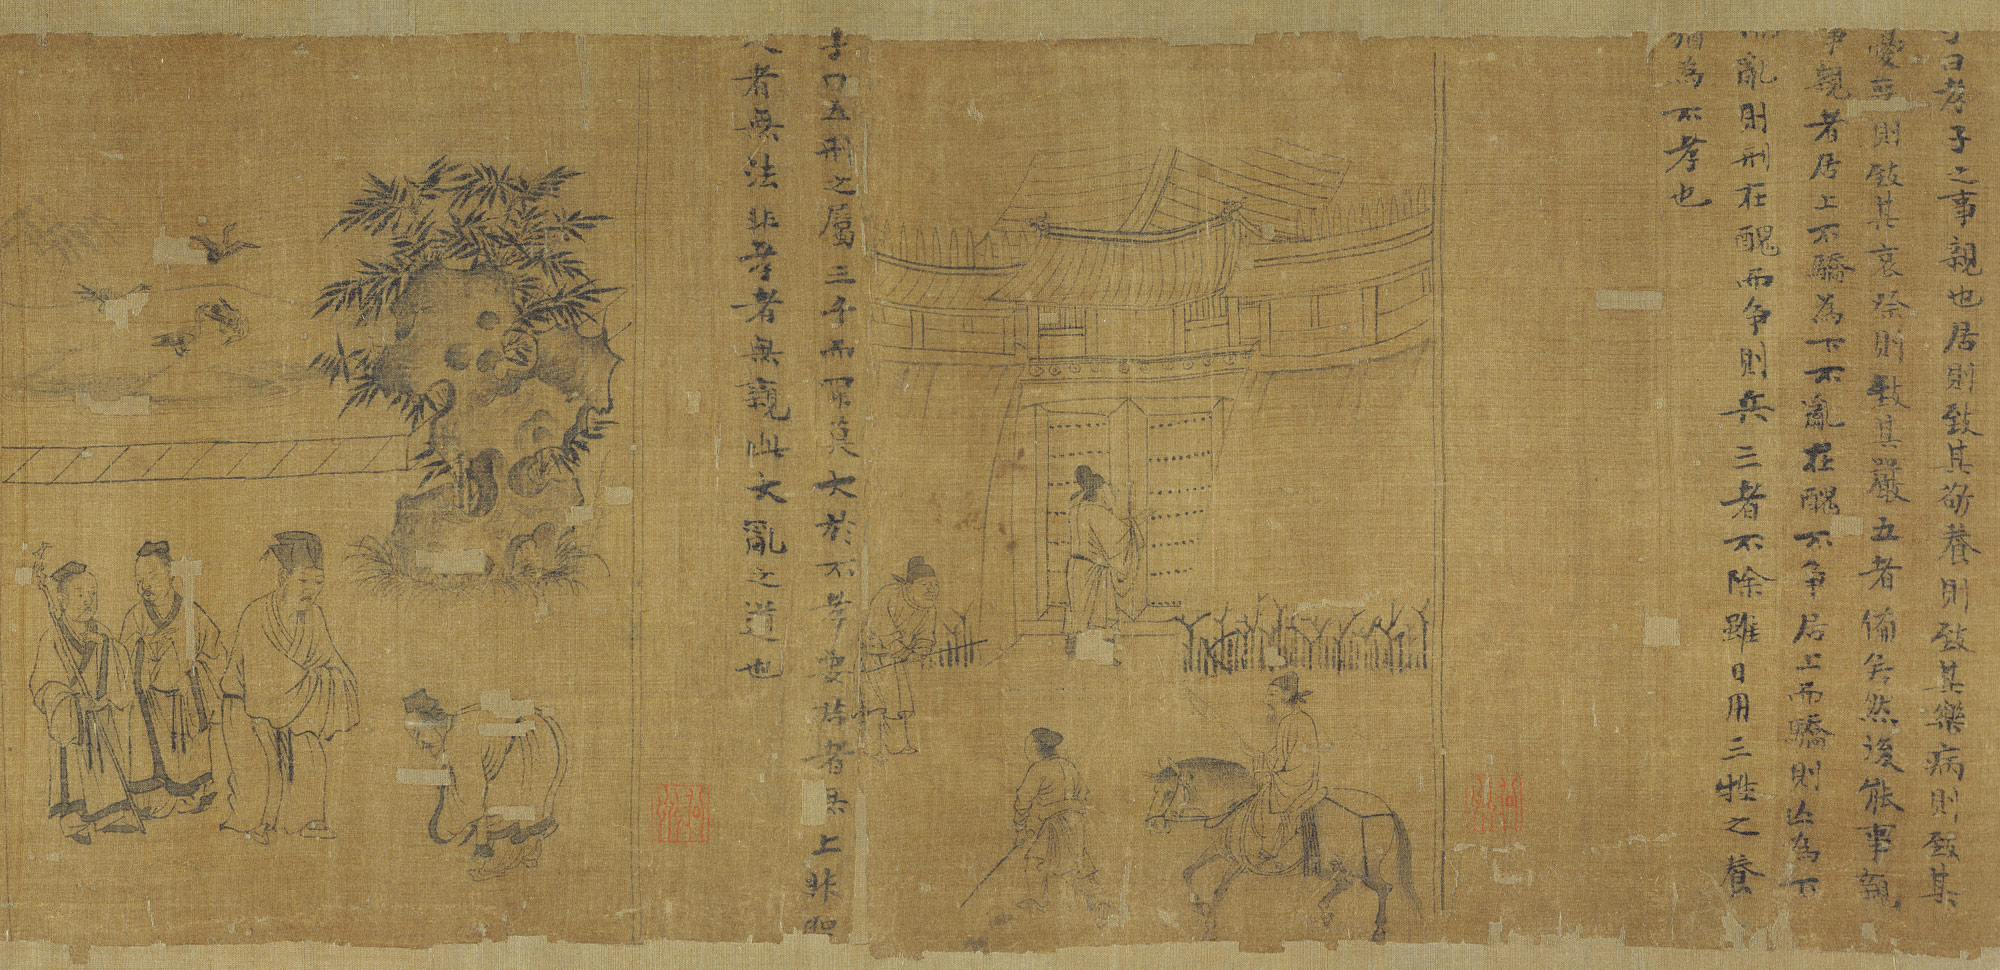 子曰孝子之事親也居則致其敬養則致其樂病則致其
憂喪則致其哀祭則致其嚴五者備矣然後能事親
事親者居上不驕為下不亂在醜不爭居上而驕則亡為下
而亂則刑在醜而爭則兵三者不除雖日用三牲之養
猶為不孝也
子曰五刑之屬三千而罪莫大於不孝要君者無上非聖
人者無法非孝者無親此大亂之道也